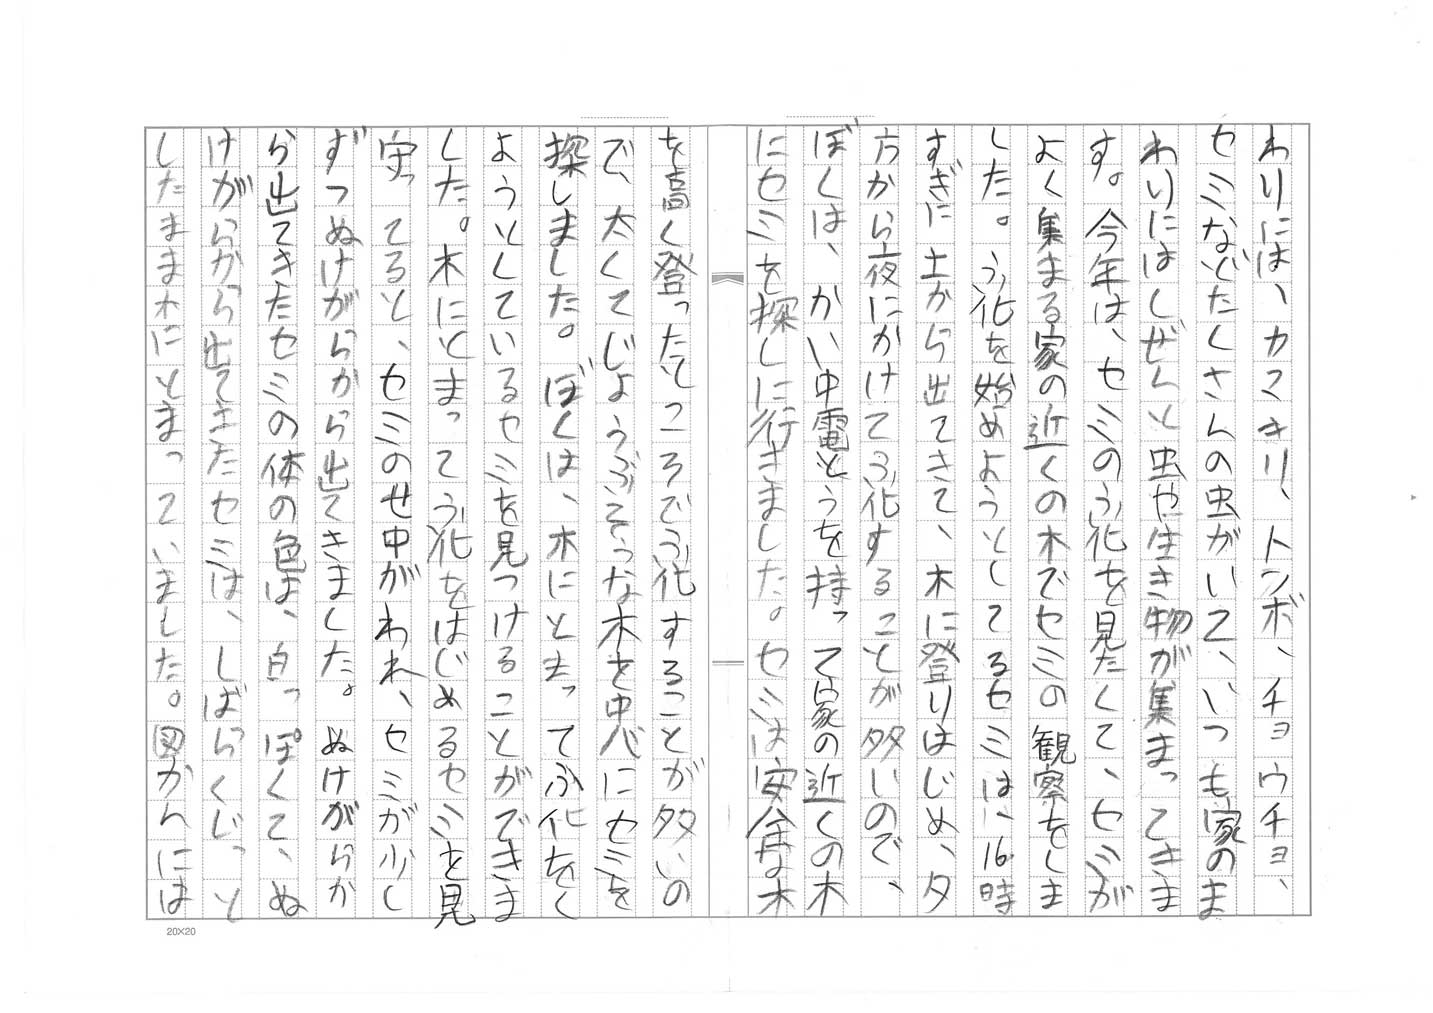 わりには、カマキリ、トンボ、チョウチョ、
セミなどたくさんの虫がいて、いつも家のま
わりにはしぜんと虫や生き物が集まってきま
す。今年は、セミのふ化を見たくて、セミが
よく集まる家の近くの木でセミの観察をしま
した。ふ化を始めようとしてるセミは、16時
すぎに土から出てきて、木に登りはじめ、夕
方から夜にかけてふ化することが多いので、
ぼくは、かい中電とうを持って家の近くの木
にセミを探しに行きました。セミは安全な木
を高く登ったところでふ化することが多いの
で、太くてじょうぶそうな木を中心にセミを
探しました。ぼくは、木にとまってふ化をし
ようとしているセミを見つけることができま
した。木にとまってふ化をはじめるセミを見
守ってると、セミのせ中がわれ、セミが少し
ずつぬけがらから出てきました。ぬけがらか
ら出てきたセミの体の色は、白っぽくて、ぬ
けがらから出てきたセミは、しばらくじっと
したまま木にとまっていました。図かんには
20×20